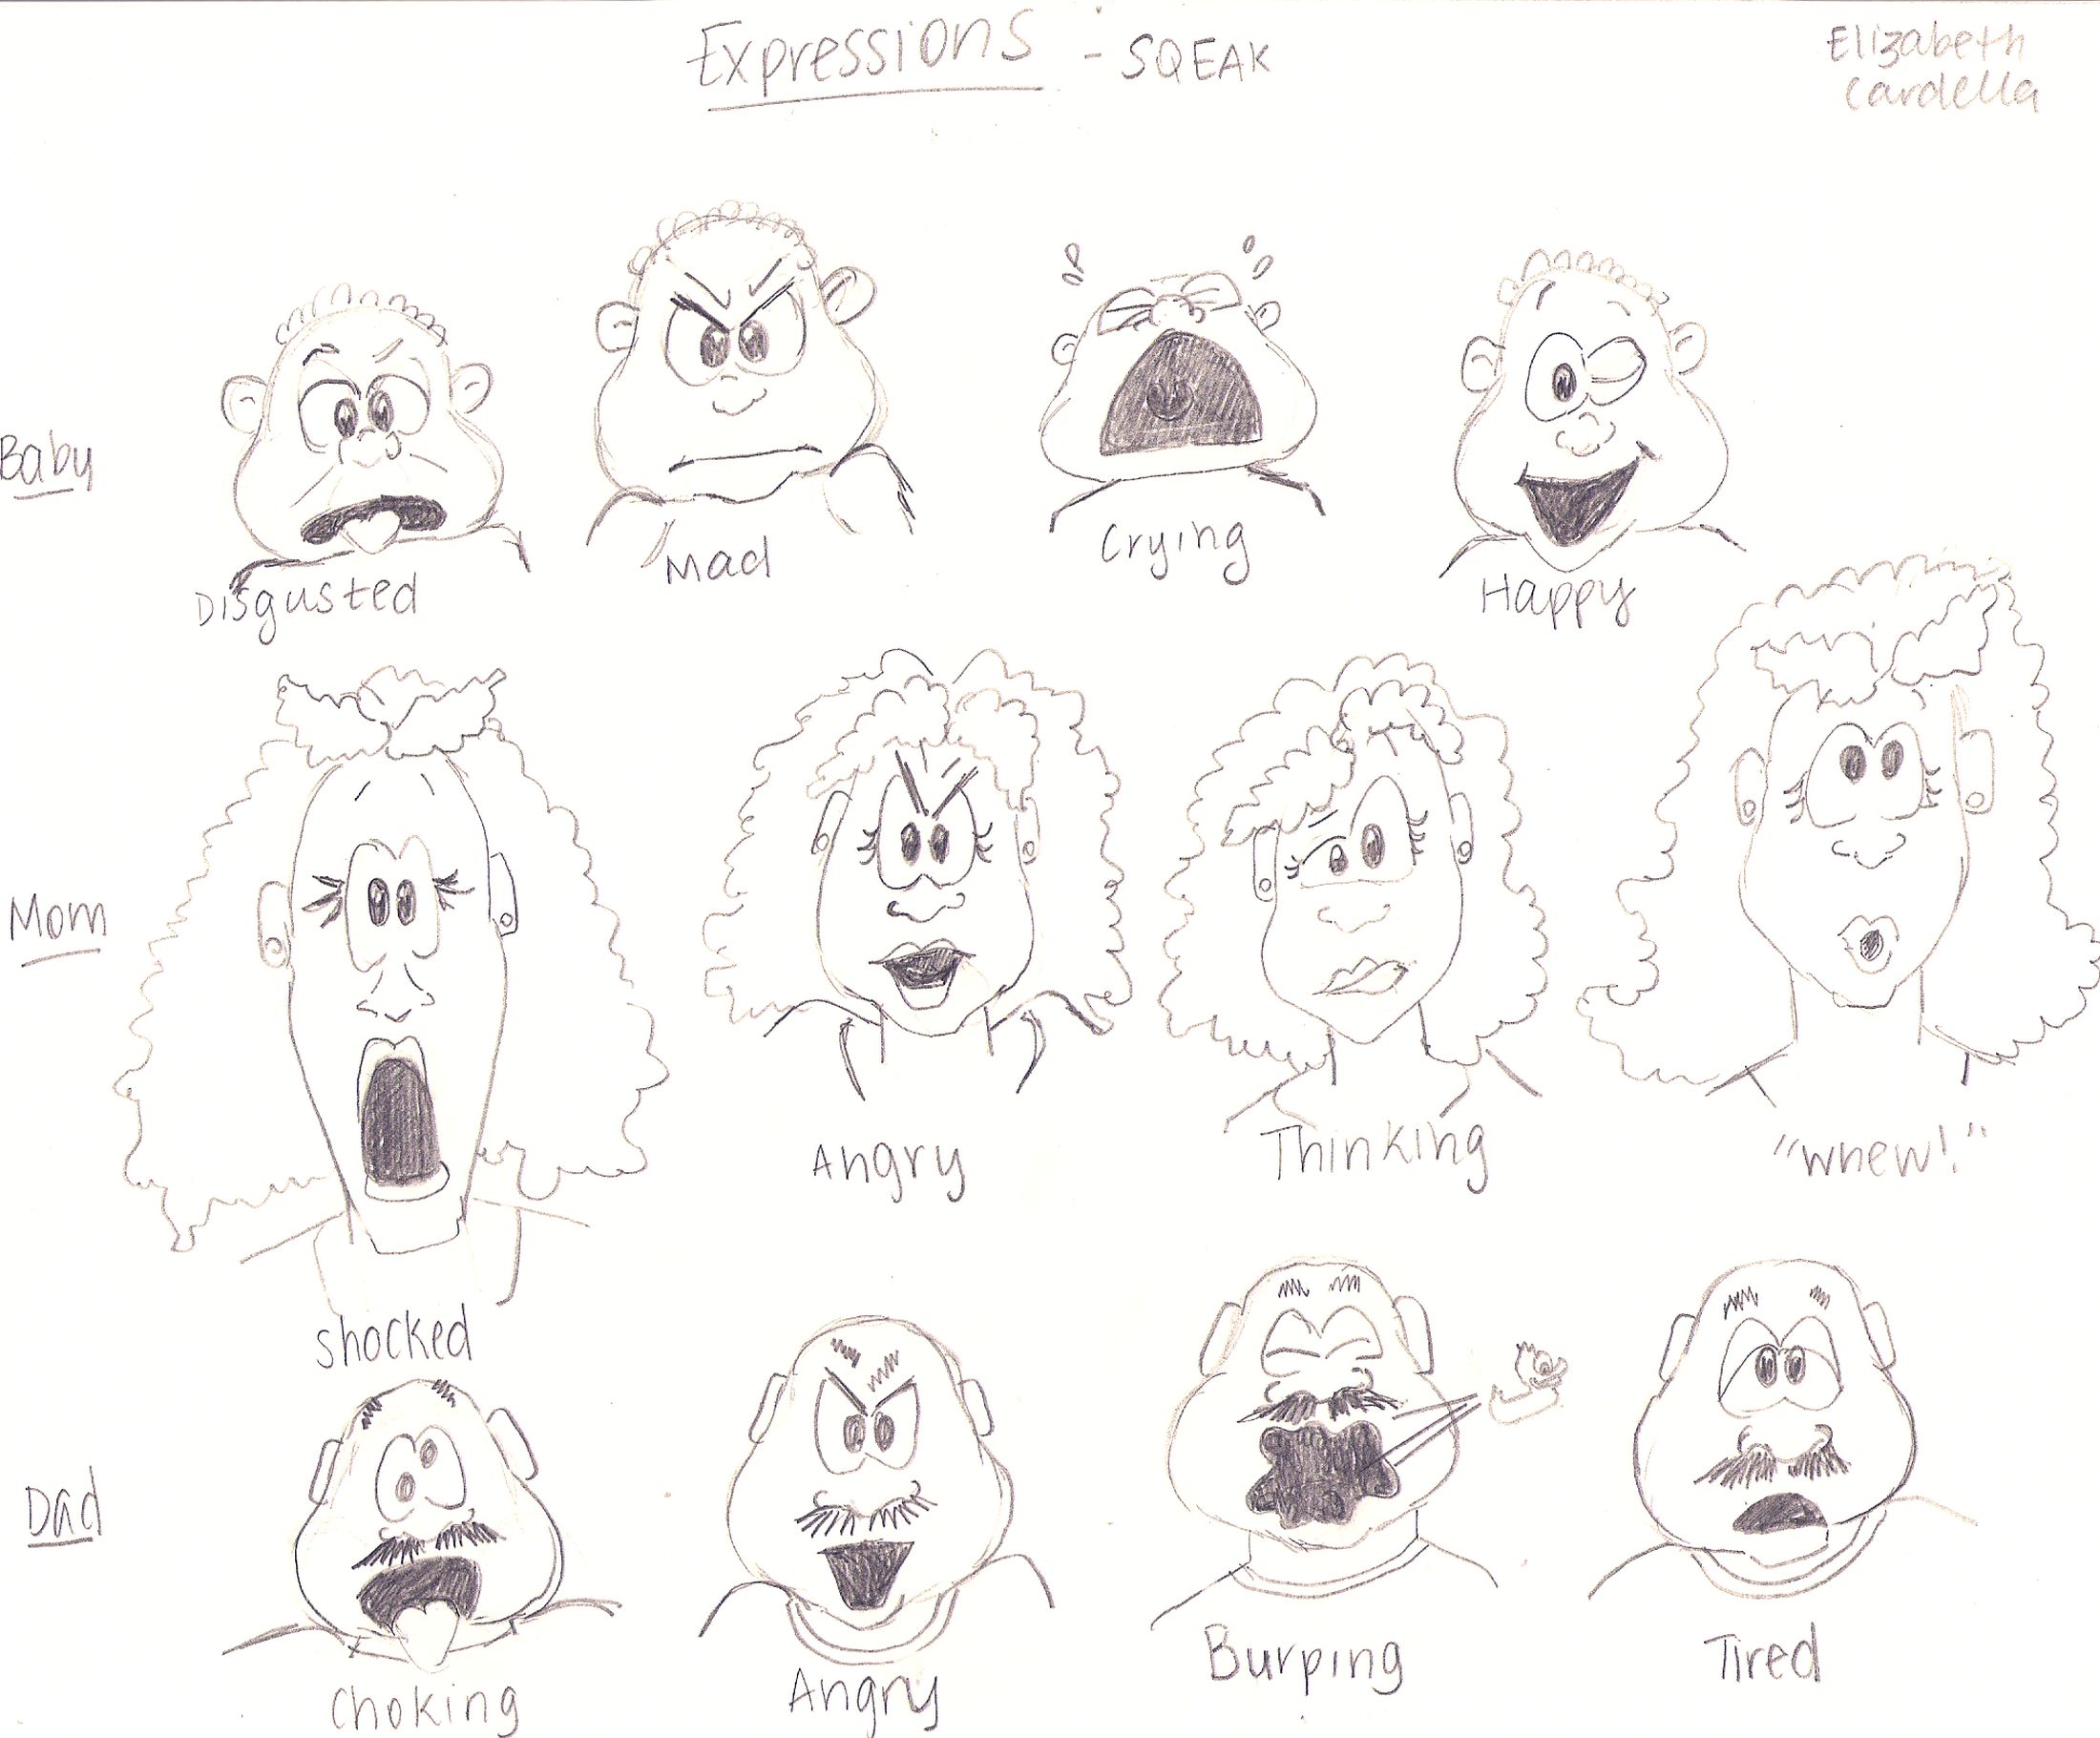 Expressions - SQEAK
Elizabeth
Cardella
Baby
Disgusted
Mad
Crying
Happy
Mom
Shocked
Angry
Thinking
"whew!"
Dad
Choking
Angry
Burping
Tired